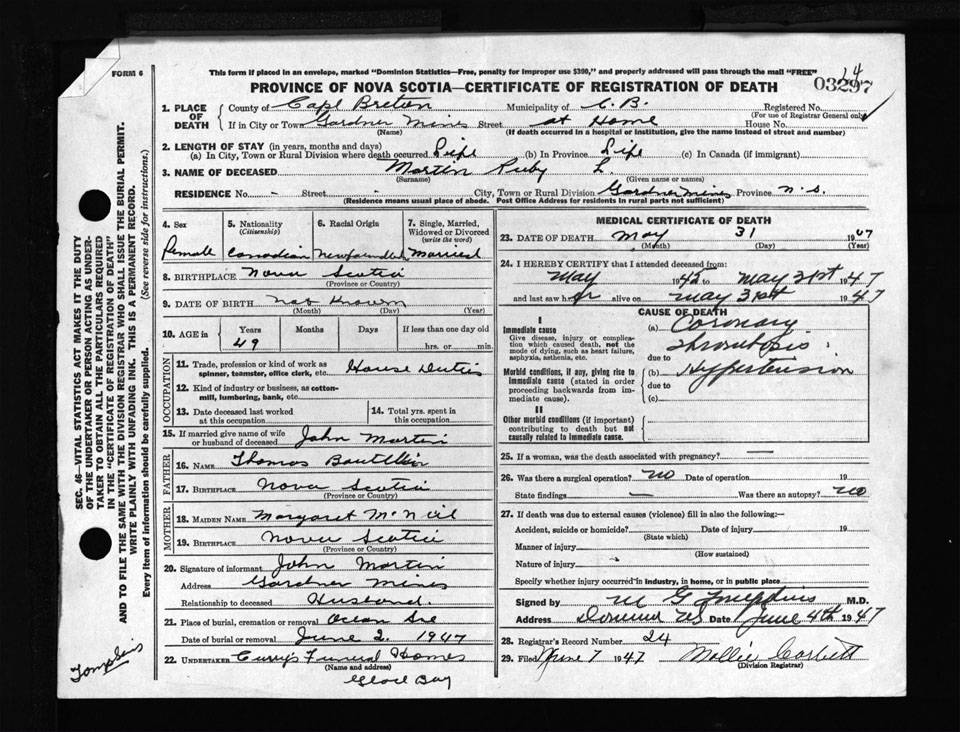 FORM 6
This form if placed in an envelope, marked "Dominion Statistics—Free, penalty for improper use $300," and properly addressed will pass through the mail "FREE"
14
03297
PROVINCE OF NOVA SCOTIA—CERTIFICATE OF REGISTRATION OF DEATH
1. PLACE OF DEATH County of Cape Breton Municipality of C.B. Registered No.
(For use of Registrar General only)
If in City or Town Gardner Mines Street at Home House No.
(Name) (If death occurred in a hospital or institution, give the name instead of street and number)
2. LENGTH OF STAY (in years, months and days)
(a) In City, Town or Rural Division where death occurred Life (b) In Province Life (c) In Canada (if immigrant)
3. NAME OF DECEASED Martin Ruby L.
(Surname) (Given name or names)
RESIDENCE No. - Street - City, Town or Rural Division Gardner Mines Province N.S.
(Residence means usual place of abode. Post Office Address for residents in rural parts not sufficient)
4. Sex 5. Nationality (Citizenship) 6. Racial Origin 7. Single, Married, Widowed or Divorced (write the word)
Female Canadian Newfoundland Married
8. BIRTHPLACE Nova Scotia
(Province or Country)
9. DATE OF BIRTH Not Known
(Month) (Day) (Year)
10. AGE in Years Months Days If less than one day old
49 hrs. or min.
OCCUPATION
11. Trade, profession or kind of work as spinner, teamster, office clerk, etc. House Duties
12. Kind of industry or business, as cotton-mill, lumbering, bank, etc.
13. Date deceased last worked at this occupation
14. Total yrs. spent in this occupation
15. If married give name of wife or husband of deceased John Martin
FATHER
16. NAME Thomas
17. BIRTHPLACE Nova Scotia
(Province or Country)
MOTHER
18. MAIDEN NAME Margaret McNeil
19. BIRTHPLACE Nova Scotia
(Province or Country)
20. Signature of informant John Martin
Address Gardner Mines
Relationship to deceased Husband.
21. Place of burial, cremation or removal Ocean
Date of burial or removal June 2, 1947
22. UNDERTAKER Curry's Funeral Homes
(Name and address)
Glace Bay
MEDICAL CERTIFICATE OF DEATH
23. DATE OF DEATH May 31 1947
(Month) (Day) (Year)
24. I HEREBY CERTIFY that I attended deceased from:
May 1945 to May 31st 1947
and last saw her alive on May 31st 1947
CAUSE OF DEATH
I
Immediate cause
Give disease, injury or complication which caused death, not the mode of dying, such as heart failure, asphyxia, asthenia, etc.
(a) Coronary
Thrombosis
due to
Morbid conditions, if any, giving rise to immediate cause (stated in order proceeding backwards from immediate cause).
(b) Hypertension
due to
(c)
II
Other morbid conditions (if important) contributing to death but not causally related to immediate cause.
25. If a woman, was the death associated with pregnancy? —
26. Was there a surgical operation? no Date of operation 19
State findings — Was there an autopsy? no
27. If death was due to external causes (violence) fill in also the following:—
Accident, suicide or homicide? Date of injury 19
(State which)
Manner of injury
(How sustained)
Nature of injury
Specify whether injury occurred in industry, in home, or in public place
Signed by M G Tompkins M.D.
Address Dominion NS Date June 4th 1947
28. Registrar's Record Number 24
29. Filed June 7 1947 Mollie Corbett
(Division Registrar)
SEC. 46—VITAL STATISTICS ACT MAKES IT THE DUTY
OF THE UNDERTAKER OR PERSON ACTING AS UNDER-
TAKER TO OBTAIN ALL THE PARTICULARS REQUIRED
IN THE "CERTIFICATE OF REGISTRATION OF DEATH"
AND TO FILE THE SAME WITH THE DIVISION REGISTRAR WHO SHALL ISSUE THE BURIAL PERMIT.
WRITE PLAINLY WITH UNFADING INK. THIS IS A PERMANENT RECORD.
Every item of information should be carefully supplied. (See reverse side for instructions.)